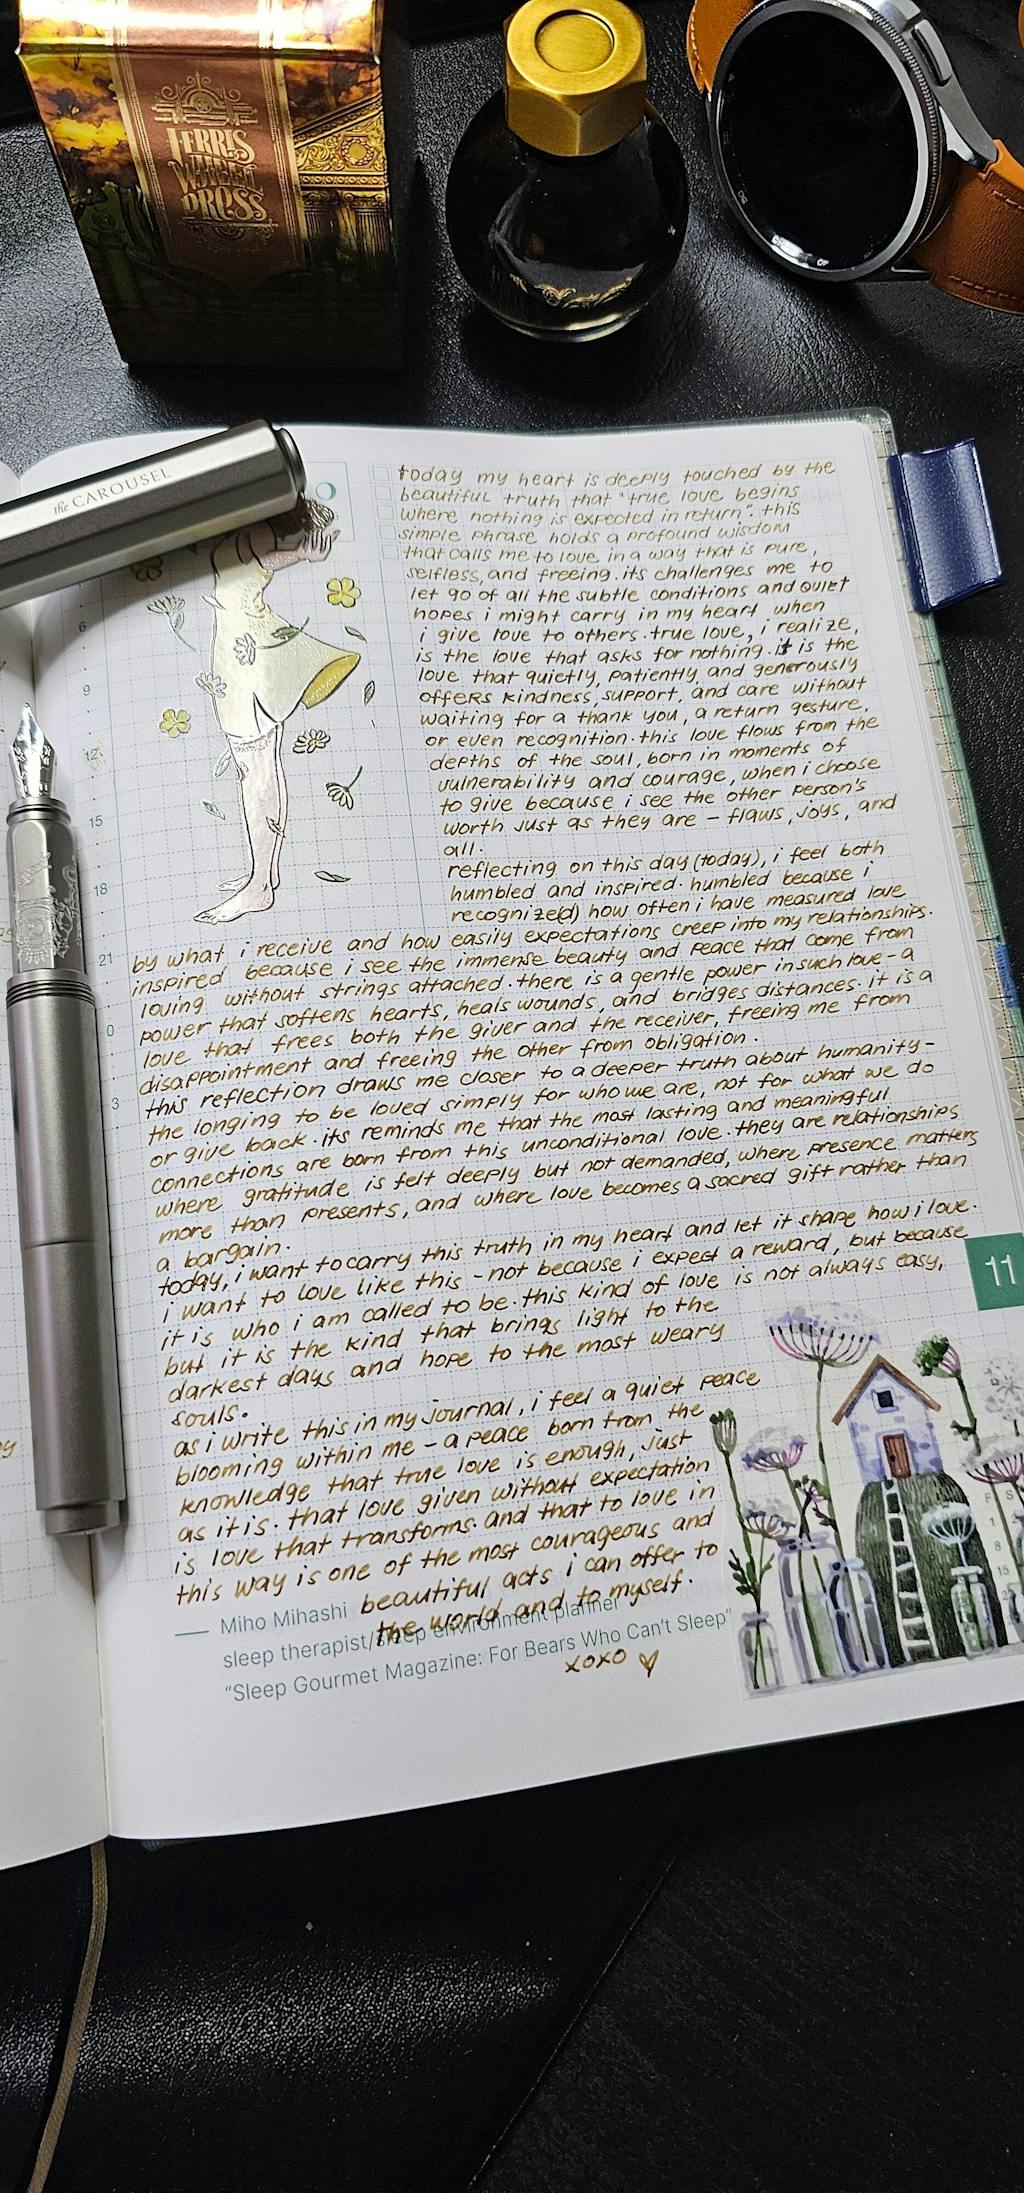 FERRIS
WHEEL
PRESS
the CAROUSEL
today my heart is deeply touched by the
beautiful truth that "true love begins
where nothing is expected in return". this
simple phrase holds a profound wisdom
that calls me to love in a way that is pure,
selfless, and freeing. its challenges me to
let go of all the subtle conditions and quiet
hopes i might carry in my heart when
i give love to others. true love, i realize,
is the love that asks for nothing. it is the
love that quietly, patiently, and generously
offers kindness, support, and care without
waiting for a thank you, a return gesture,
or even recognition. this love flows from the
depths of the soul, born in moments of
vulnerability and courage, when i choose
to give because i see the other person's
worth just as they are – flaws, joys, and
all.
reflecting on this day (today), i feel both
humbled and inspired. humbled because i
recognize(d) how often i have measured love
by what i receive and how easily expectations creep into my relationships.
inspired because i see the immense beauty and peace that come from
loving without strings attached. there is a gentle power in such love – a
power that softens hearts, heals wounds, and bridges distances. it is a
love that frees both the giver and the receiver, freeing me from
disappointment and freeing the other from obligation.
this reflection draws me closer to a deeper truth about humanity –
the longing to be loved simply for who we are, not for what we do
or give back. its reminds me that the most lasting and meaningful
connections are born from this unconditional love. they are relationships
where gratitude is felt deeply but not demanded, where presence matters
more than presents, and where love becomes a sacred gift rather than
a bargain.
today, i want to carry this truth in my heart and let it shape how i love.
i want to love like this – not because i expect a reward, but because
it is who i am called to be. this kind of love is not always easy,
but it is the kind that brings light to the
darkest days and hope to the most weary
souls.
as i write this in my journal, i feel a quiet peace
blooming within me – a peace born from the
knowledge that true love is enough, just
as it is. that love given without expectation
is love that transforms. and that to love in
this way is one of the most courageous and
beautiful acts i can offer to
the world and to myself.
— Miho Mihashi
sleep therapist/sleep environment planner
"Sleep Gourmet Magazine: For Bears Who Can't Sleep"
xoxo
6
9
12
15
18
21
0
3
11